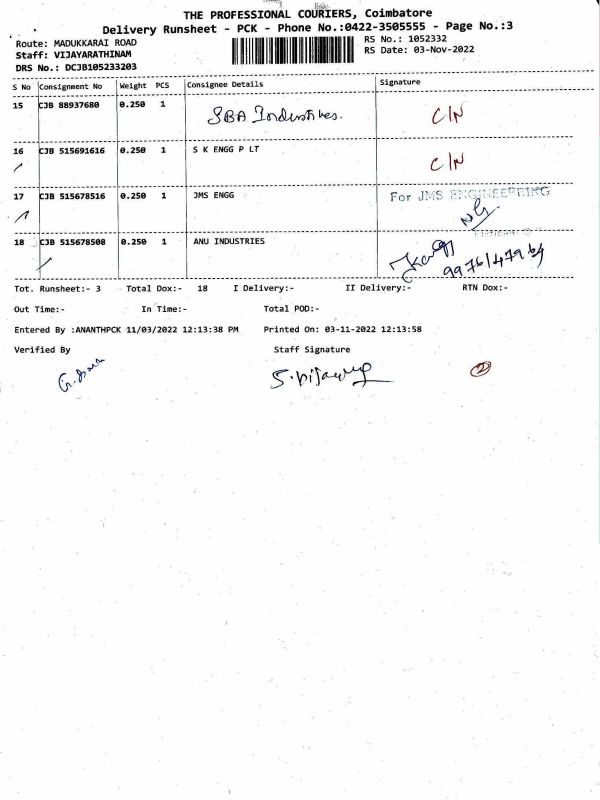 THE PROFESSIONAL COURIERS, Coimbatore
Delivery Runsheet - PCK - Phone No.:0422-3505555 - Page No.:3
Route: MADUKKARAI ROAD
Staff: VIJAYARATHINAM
DRS No.: DCJB105233203
RS No.: 1052332
RS Date: 03-Nov-2022
S No Consignment No Weight PCS Consignee Details Signature
15 CJB 88937680 0.250 1 SBA Industries. C/N
16 CJB 515691616 0.250 1 S K ENGG P LT C/N
17 CJB 515678516 0.250 1 JMS ENGG For JMS ENGINEERING
18 CJB 515678508 0.250 1 ANU INDUSTRIES
Tot. Runsheet:- 3 Total Dox:- 18 I Delivery:- II Delivery:- RTN Dox:-
Out Time:- In Time:- Total POD:-
Entered By :ANANTHPCK 11/03/2022 12:13:38 PM Printed On: 03-11-2022 12:13:58
Verified By Staff Signature
2